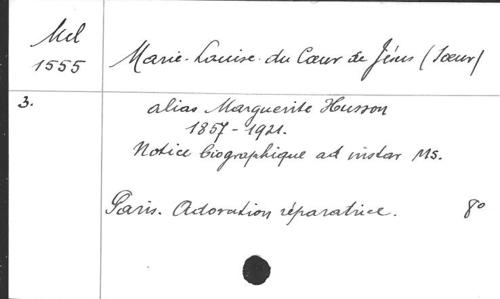 Mel
1555
Marie-Louise du Cœur de Jésus (Sœur)
3.
alias Marguerite Husson
1857-1921.
Notice biographique ad instar Ms.
Paris. Adoration réparatrice. 8°